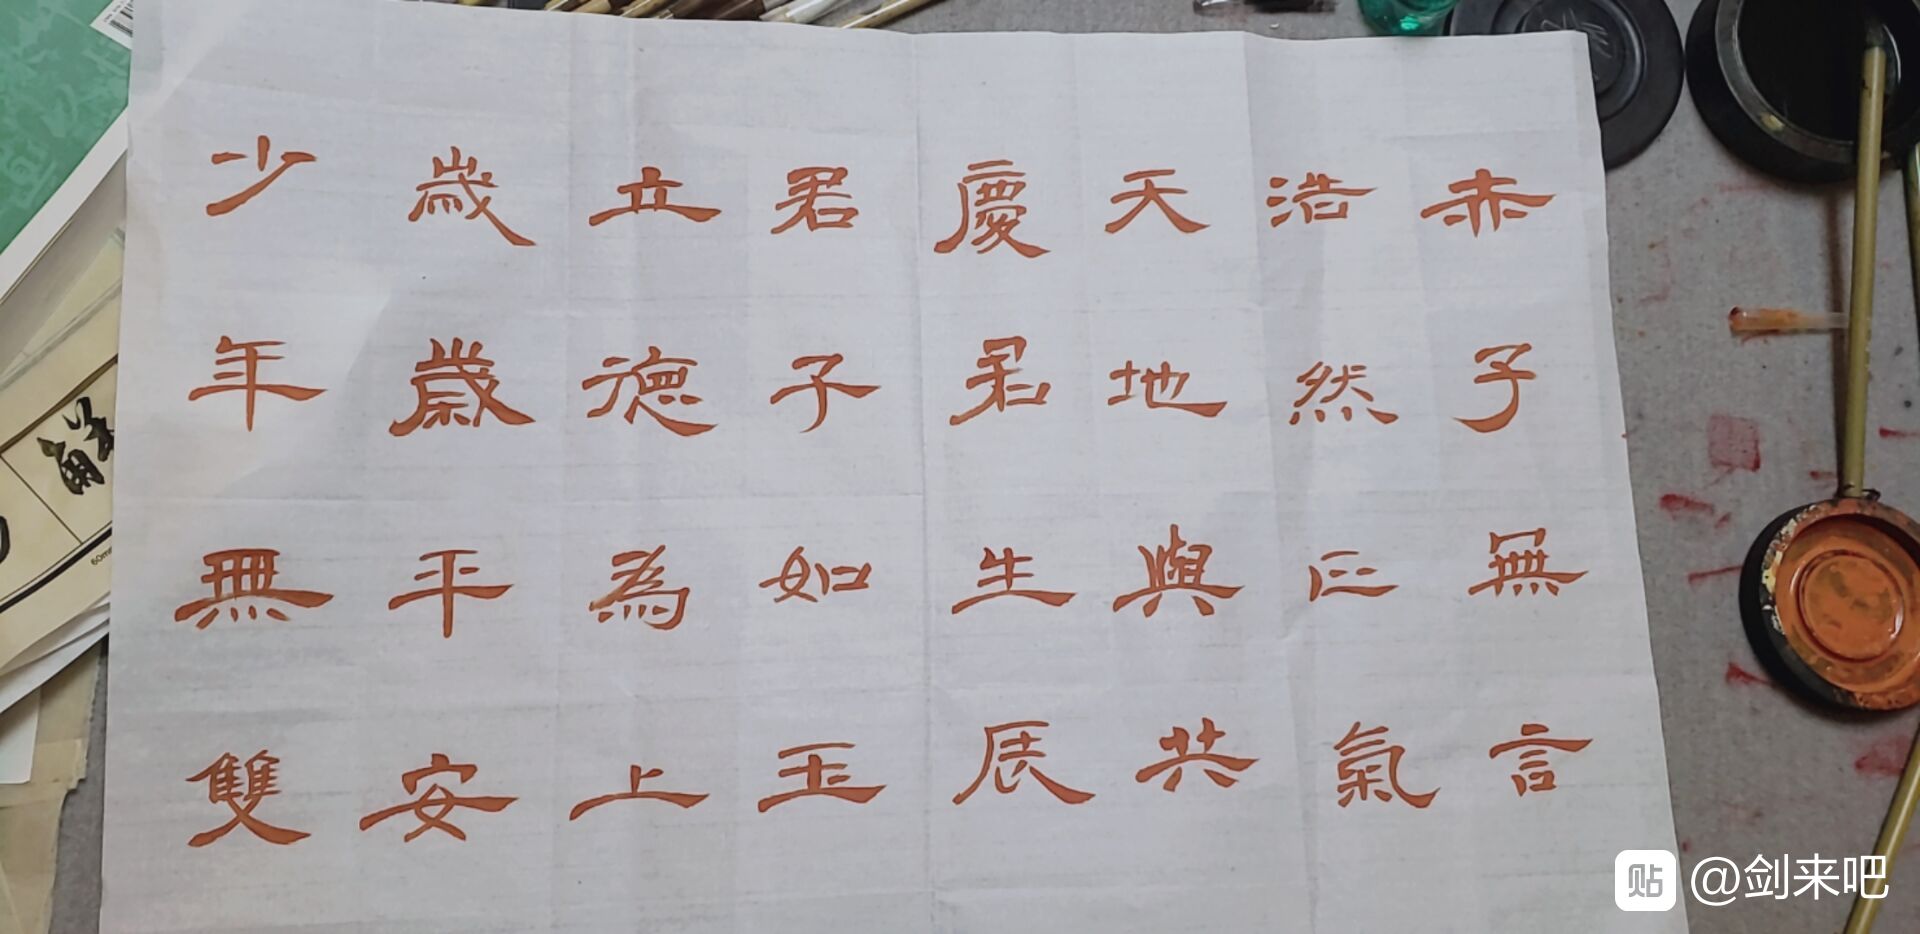 赤子無言
浩然正氣
天地與共
慶君生辰
君子如玉
立德為上
歲歲平安
少年無雙
解
贴 @剑来吧